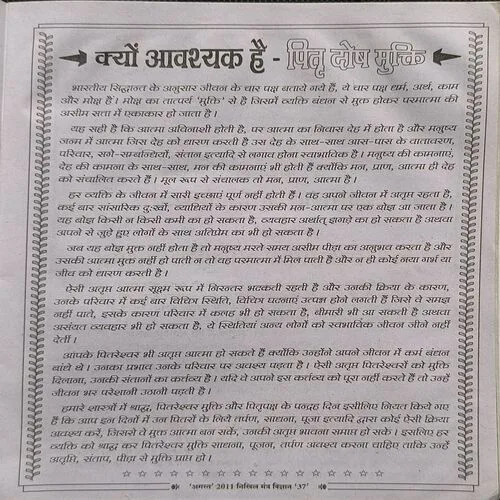 क्यों आवश्यक है - पितृ दोष मुक्ति
भारतीय सिद्धान्त के अनुसार जीवन के चार पक्ष बताये गये हैं, ये चार पक्ष धर्म, अर्थ, काम
और मोक्ष हैं। मोक्ष का तात्पर्य 'मुक्ति' से है जिसमें व्यक्ति बंधन से मुक्त होकर परमात्मा की
असीम सत्ता में एकाकार हो जाता है।
यह सही है कि आत्मा अविनाशी होती है, पर आत्मा का निवास देह में होता है और मनुष्य
जन्म में आत्मा जिस देह को धारण करती है उस देह के साथ-साथ आस-पास के वातावरण,
परिवार, सगे-सम्बन्धियों, संतान इत्यादि से लगाव होना स्वाभाविक है। मनुष्य की कामनाएं,
देह की कामना के साथ-साथ, मन की कामनाएं भी होती हैं क्योंकि मन, प्राण, आत्मा ही देह
को संचालित करते हैं। मूल रूप से संचालक तो मन, प्राण, आत्मा है।
हर व्यक्ति के जीवन में सारी इच्छाएं पूर्ण नहीं होती हैं। वह अपने जीवन में अतृप्त रहता है,
कई बार सांसारिक दुःखों, व्याधियों के कारण उसकी मन-आत्मा पर एक बोझ आ जाता है।
यह बोझ किसी न किसी कमी का हो सकता है, व्यवहार अर्थात् झगड़े का हो सकता है अथवा
अपने से जुड़े हुए लोगों के साथ अतिप्रेम का भी हो सकता है।
जब यह बोझ मुक्त नहीं होता है तो मनुष्य मरते समय असीम पीड़ा का अनुभव करता है और
उसकी आत्मा मुक्त नहीं हो पाती न तो वह परमात्मा में मिल पाती है और न ही कोई नया गर्भ या
जीव को धारण करती है।
ऐसी अतृप्त आत्मा सूक्ष्म रूप में निरन्तर भटकती रहती है और उनकी क्रिया के कारण,
उनके परिवार में कई बार विचित्र स्थिति, विचित्र घटनाएं उत्पन्न होने लगती हैं जिसे वे समझ
नहीं पाते, इसके कारण परिवार में कलह भी हो सकता है, बीमारी भी आ सकती है अथवा
असंयत व्यवहार भी हो सकता है, ये स्थितियां अन्य लोगों को स्वभाविक जीवन जीने नहीं
देतीं।
आपके पितरेश्वर भी अतृप्त आत्मा हो सकते हैं क्योंकि उन्होंने अपने जीवन में कर्म बंधन
बांधे थे। उनका प्रभाव उनके परिवार पर अवश्य पड़ता है। ऐसी अतृप्त पितरेश्वरों को मुक्ति
दिलाना, उनकी संतानों का कर्तव्य है। यदि वे अपने इस कर्तव्य को पूरा नहीं करते हैं तो उन्हें
जीवन भर परेशानी उठानी पड़ती है।
हमारे शास्त्रों में श्राद्ध, पितरेश्वर मुक्ति और पितृपक्ष के पन्द्रह दिन इसीलिए नियत किये गए
हैं कि आप इन दिनों में उन पितरों के लिये तर्पण, साधना, पूजा इत्यादि द्वारा कोई ऐसी क्रिया
अवश्य करें, जिससे वे मुक्त आत्मा बन सकें, उनकी अतृप्त भावना समाप्त हो सके। इसलिए हर
व्यक्ति को श्राद्ध कर पितरेश्वर मुक्ति साधना, पूजन, तर्पण अवश्य करना चाहिए ताकि उन्हें
अतृप्ति, संताप, पीड़ा से मुक्ति प्राप्त हो।
'अगस्त' 2011 निखिल मंत्र विज्ञान '37'